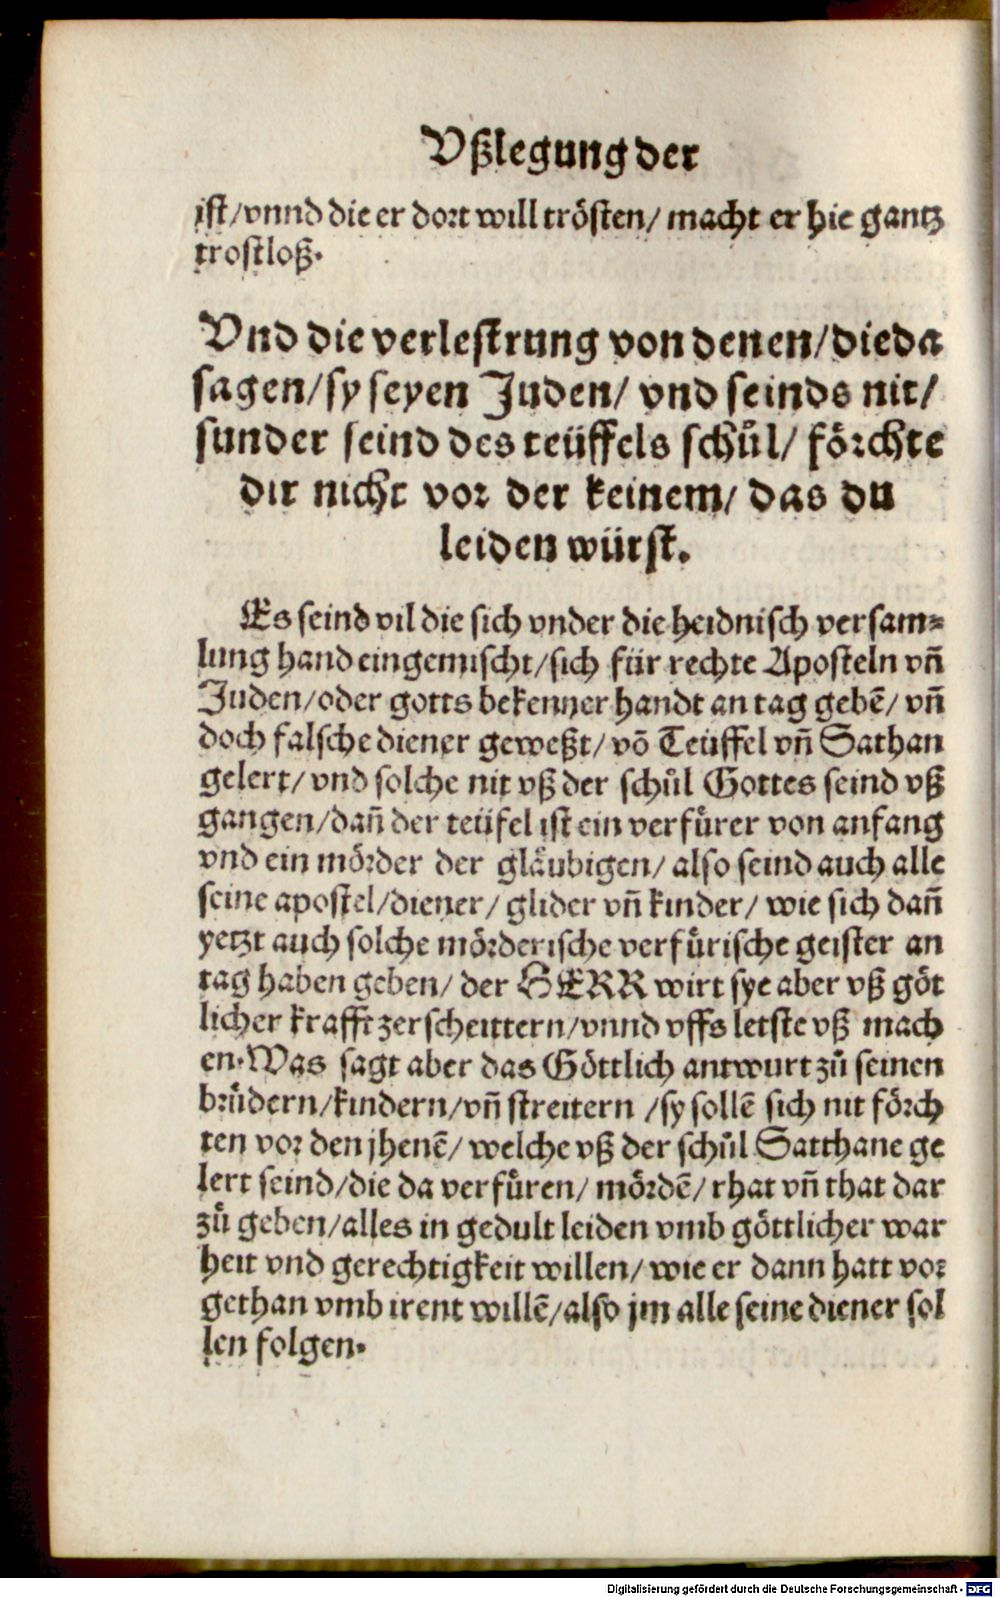 Vßlegung der
ist/vnnd die er dort will trösten/ macht er hie gantz
trostloß.
Vnd die verlestrung von denen/die da
sagen/sy seyen Juden/ vnd seinds nit/
sunder seind des teüffels schůl/ förchte
dir nicht vor der keinem/ das du
leiden würst.
Es seind vil die sich vnder die heidnisch versam⸗
lung hand eingemischt/sich für rechte Aposteln vñ
Juden/oder gotts bekenner handt an tag gebē/ vñ
doch falsche diener geweßt/ vō Teüffel vñ Sathan
gelert/ vnd solche nit vß der schůl Gottes seind vß
gangen/dañ der teüfel ist ein verfürer von anfang
vnd ein mörder der gläubigen/ also seind auch alle
seine apostel/diener/ glider vñ kinder/ wie sich dañ
yetzt auch solche mörderische verfürische geister an
tag haben geben/ der HERR wirt sye aber vß göt
licher krafft zerscheittern/vnnd vffs letste vß mach
en. Was sagt aber das Göttlich antwurt zů seinen
brüdern/kindern/vñ streitern /sy sollē sich nit förch
ten vor den jhenē/ welche vß der schůl Satthane ge
lert seind/die da verfüren/ mördē/ rhat vñ that dar
zů geben/alles in gedult leiden vmb göttlicher war
heit vnd gerechtigkeit willen/ wie er dann hatt vor
gethan vmb irent willē/also jm alle seine diener sol
len folgen.
Digitalisierung gefördert durch die Deutsche Forschungsgemeinschaft - DFG